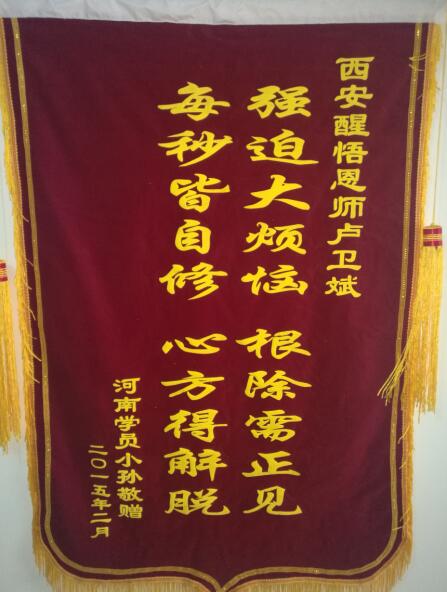 西安醒悟恩师卢卫斌
强迫大烦恼 根除需正见
每秒皆自修 心方得解脱
河南学员小孙敬赠
二〇一五年二月